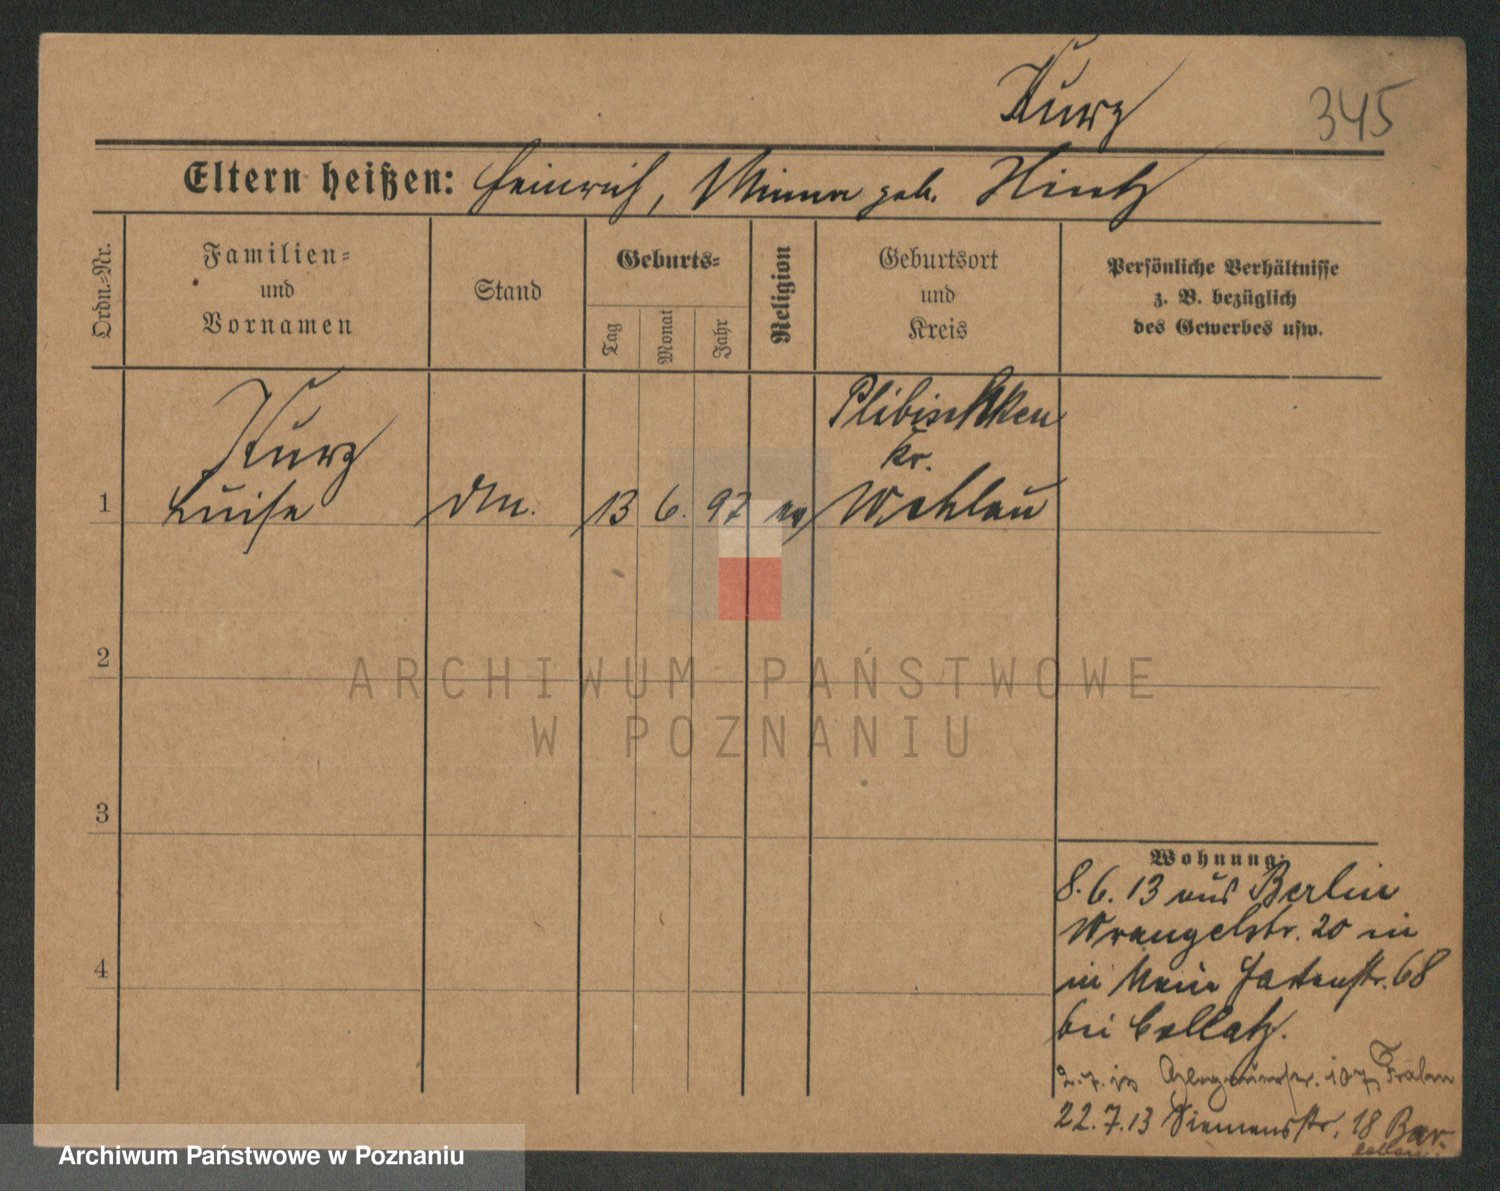 Kurz 345
Eltern heißen: Heinrich, Minna geb. Hintz
Ordn.-Nr.
Familien=
und
Vornamen
Stand
Geburts=
Tag
Monat
Jahr
Religion
Geburtsort
und
Kreis
Persönliche Verhältnisse
z. B. bezüglich
des Gewerbes usw.
Kurz
1 Luise
13 6. 97 ev
Plibischken
Kr.
Wehlau
2
ARCHIWUM PAŃSTWOWE
W POZNANIU
3
4
Wohnung:
8. 6. 13 aus Berlin
Wrangelstr. 20 in
in 68
bei Collatz.
2. 7. in Glogauerstr. 107
22. 7. 13 Siemensstr. 18
Archiwum Państwowe w Poznaniu